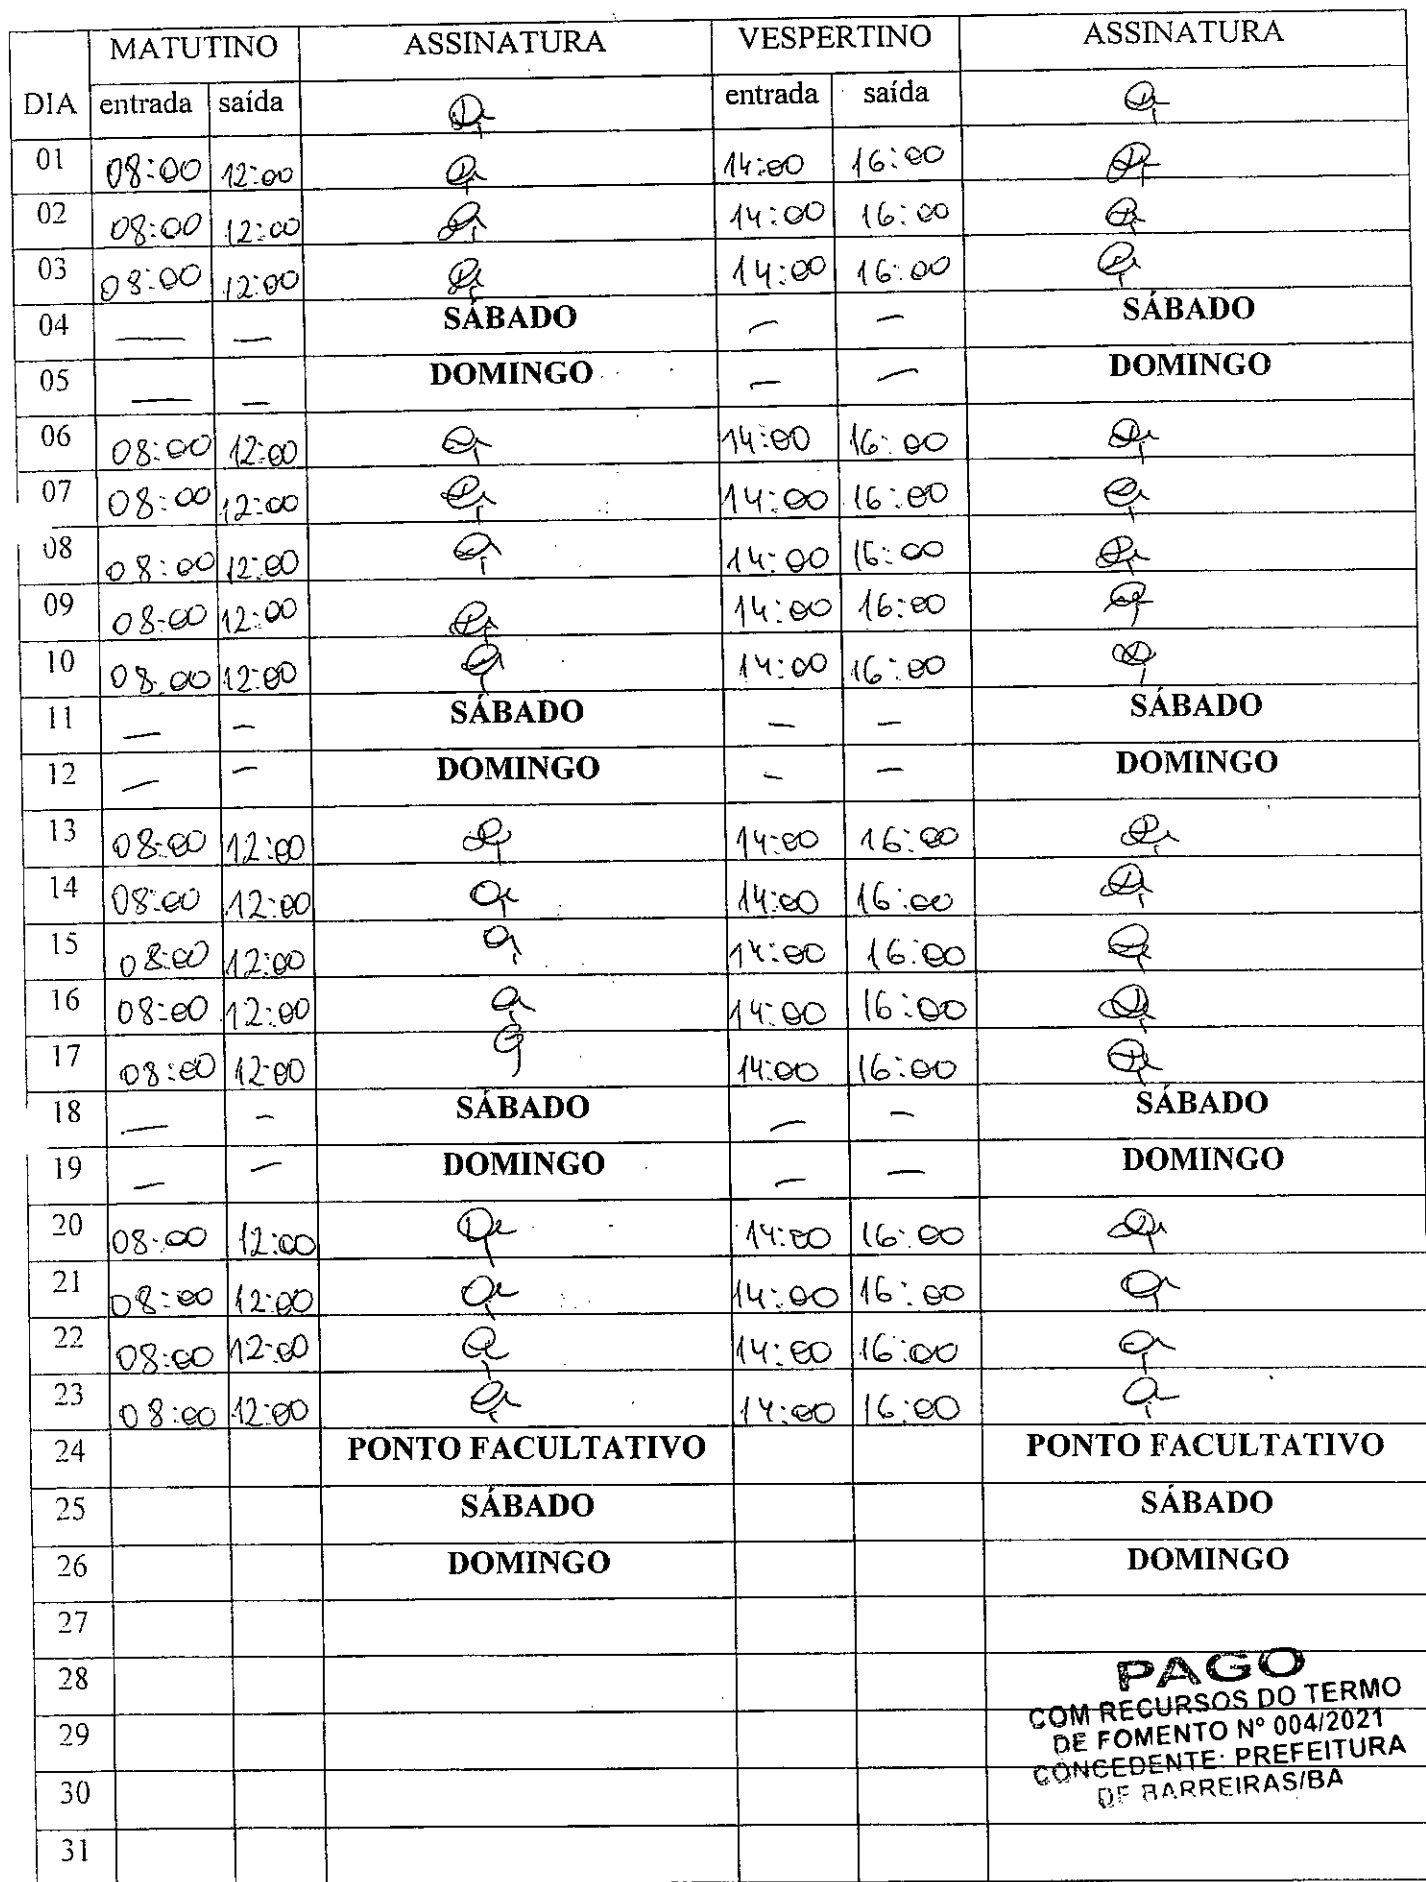 MATUTINO ASSINATURA VESPERTINO ASSINATURA
DIA entrada saída entrada saída
01 08:00 12:00 14:00 16:00
02 08:00 12:00 14:00 16:00
03 08:00 12:00 14:00 16:00
04 — — SÁBADO — — SÁBADO
05 — — DOMINGO — — DOMINGO
06 08:00 12:00 14:00 16:00
07 08:00 12:00 14:00 16:00
08 08:00 12:00 14:00 16:00
09 08:00 12:00 14:00 16:00
10 08:00 12:00 14:00 16:00
11 — — SÁBADO — — SÁBADO
12 — — DOMINGO — — DOMINGO
13 08:00 12:00 14:00 16:00
14 08:00 12:00 14:00 16:00
15 08:00 12:00 14:00 16:00
16 08:00 12:00 14:00 16:00
17 08:00 12:00 14:00 16:00
18 — — SÁBADO — — SÁBADO
19 — — DOMINGO — — DOMINGO
20 08:00 12:00 14:00 16:00
21 08:00 12:00 14:00 16:00
22 08:00 12:00 14:00 16:00
23 08:00 12:00 14:00 16:00
24 PONTO FACULTATIVO PONTO FACULTATIVO
25 SÁBADO SÁBADO
26 DOMINGO DOMINGO
27
28
29
30
31
PAGO
COM RECURSOS DO TERMO
DE FOMENTO Nº 004/2021
CONCEDENTE: PREFEITURA
DE BARREIRAS/BA